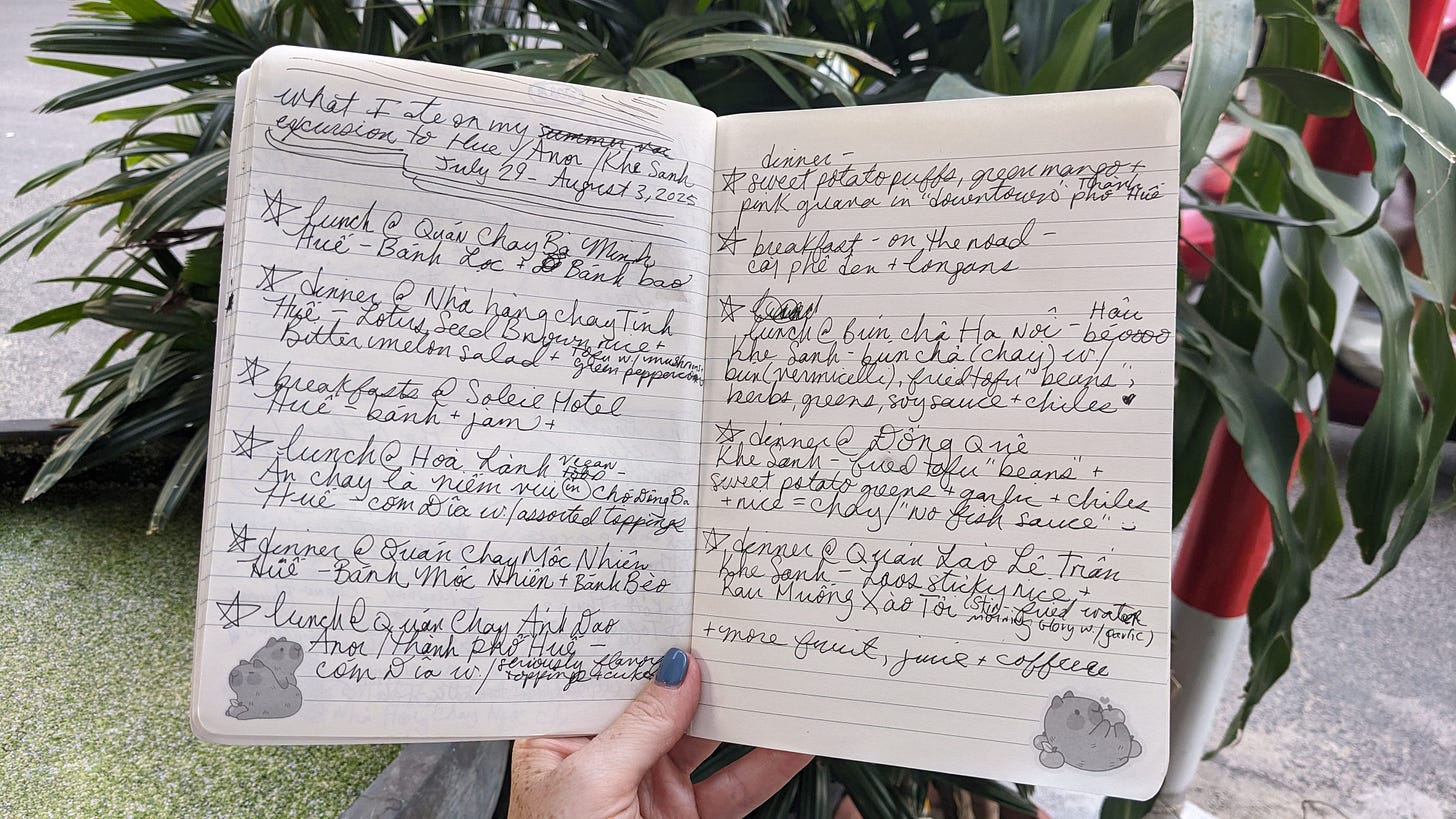 what I ate on my
excursion to Hue / Anor / Khe Sanh
July 29 - August 3, 2025
☆ lunch @ Quán Chay Bà Minh
Huế - Bánh Lọc + Banh bao
☆ dinner @ Nhà hàng chay Tịnh
Huế - Lotus Seed Brown rice +
Bitter melon salad + Tofu w/ mushrooms
green peppercorn
☆ breakfasts @ Soleil Hotel
Huế - bánh + jam +
☆ lunch @ Hoa Lành vegan
Ăn chay là niềm vui (in) Chợ Đông Ba
Huế - cơm Dĩa w/ assorted toppings
☆ dinner @ Quán Chay Mộc Nhiên
Huế - Bánh Mộc Nhiên + Bánh Bèo
☆ lunch @ Quán Chay Anh Dao
Anor / Thành phố Huế -
cơm Dĩa w/ seriously flavor
toppings + cuke
dinner -
☆ sweet potato puffs, green mango +
pink guava in "downtown" Thành phố Huế
☆ breakfast - on the road -
cay phê đen + longans
☆ lunch @ Bún chả Ha Nôi - Hâu
Khe Sanh - bún chả (chay) w/
bun (vermicelli), fried tofu "beans",
herbs, greens, soy sauce + chiles ♥
☆ dinner @ Đông Quê
Khe Sanh - fried tofu "beans" +
sweet potato greens + garlic + chiles
+ rice = chay / "no fish sauce"
☆ dinner @ Quán Lào Lê Trân
Khe Sanh - Laos sticky rice, +
Rau Muống Xào Tỏi (Stir-fried water
morning glory w/ garlic)
+ more fruit, juice + coffeeee